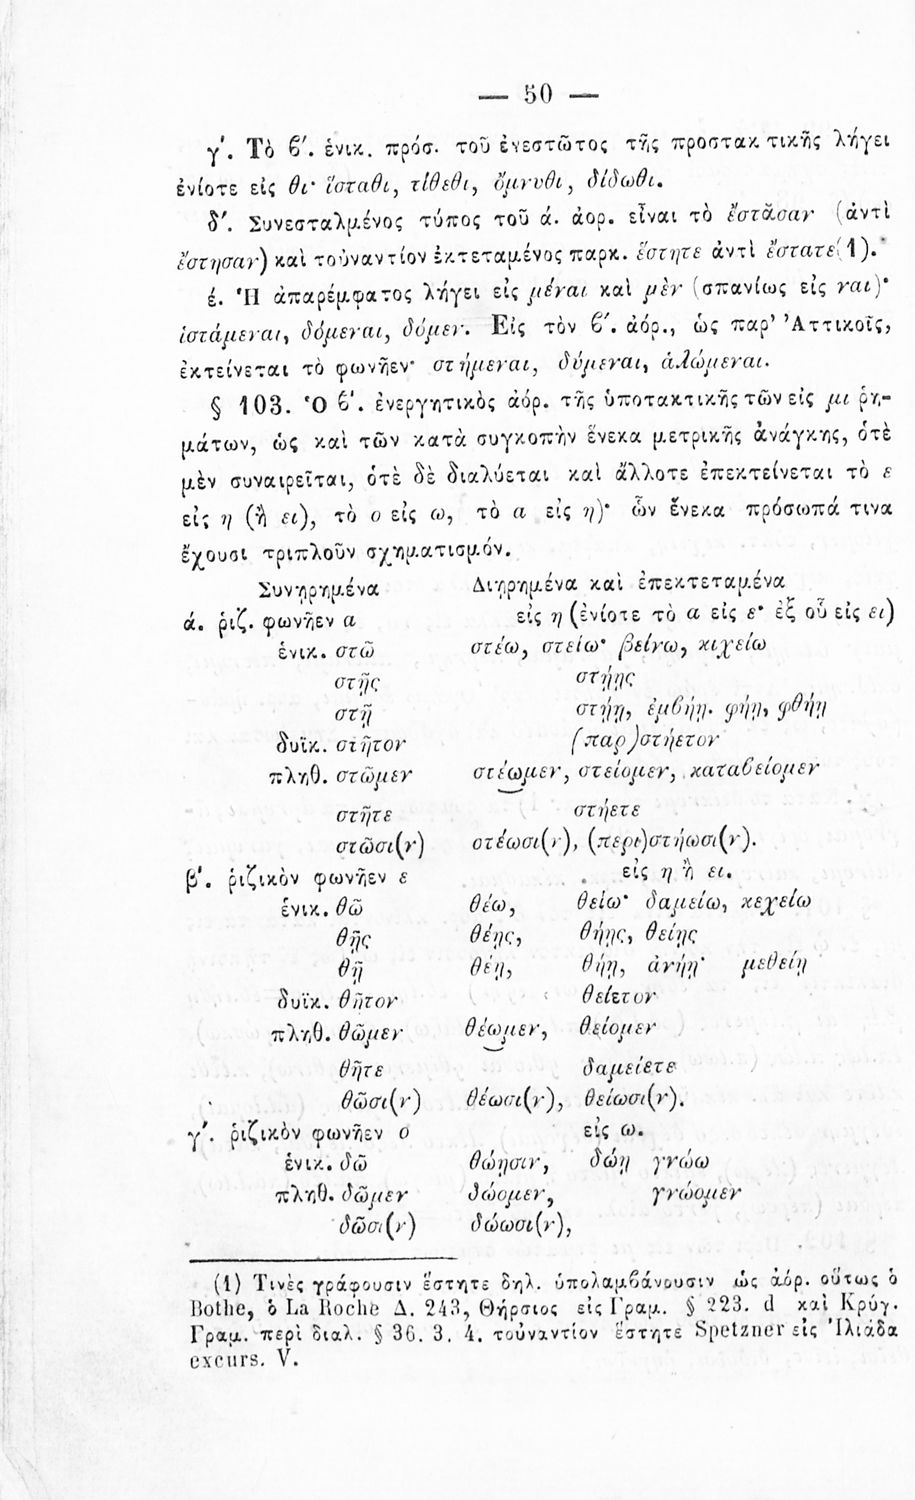 — 50 —
γʹ. Τὸ ϐʹ. ἑνικ. πρόσ. τοῦ ἐνεστῶτος τῆς προστακτικῆς λήγει
ἐνίοτε εἰς θι· ἵσταθι, τίθεθι, ὄμνυθι, δίδωθι.
δʹ. Συνεσταλμένος τύπος τοῦ ά. ἀορ. εἶναι τὸ ἔστᾰσαν (ἀντὶ
ἔστησαν) καὶ τοὐναντίον ἐκτεταμένος παρκ. ἕστητε ἀντὶ ἔστατε(1).
έ. Ἡ ἀπαρέμφατος λήγει εἰς μέναι καὶ μὲν (σπανίως εἰς ναι)·
ἱστάμεναι, δόμεναι, δόμεν. Εἰς τὸν ϐʹ. ἀόρ., ὡς παρ' Ἀττικοῖς,
ἐκτείνεται τὸ φωνῆεν· στήμεναι, δύμεναι, ἁλώμεναι.
§ 103. Ὁ ϐʹ. ἐνεργητικὸς ἀόρ. τῆς ὑποτακτικῆς τῶν εἰς μι ῥη-
μάτων, ὡς καὶ τῶν κατὰ συγκοπὴν ἕνεκα μετρικῆς ἀνάγκης, ὁτὲ
μὲν συναιρεῖται, ὁτὲ δὲ διαλύεται καὶ ἄλλοτε ἐπεκτείνεται τὸ ε
εἰς η (ἢ ει), τὸ ο εἰς ω, τὸ α εἰς η)· ὧν ἕνεκα πρόσωπά τινα
ἔχουσι τριπλοῦν σχηματισμόν.
Συνῃρημένα Διῃρημένα καὶ ἐπεκτεταμένα
ά. ῥιζ. φωνῆεν α εἰς η (ἐνίοτε τὸ α εἰς ε· ἐξ οὗ εἰς ει)
ἑνικ. στῶ στέω, στείω· βείνω, κιχείω
στῇς στήῃς
στῇ στήῃ, ἐμβήῃ. φήῃ, φθήῃ
δυϊκ. στῆτον (παρ)στήετον
πληθ. στῶμεν στέωμεν, στείομεν, καταϐείομεν
στῆτε στήετε
στῶσι(ν) στέωσι(ν), (περι)στήωσι(ν).
βʹ. ῥιζικὸν φωνῆεν ε εἰς η ἢ ει.
ἑνικ. θῶ θέω, θείω· δαμείω, κεχείω
θῇς θέῃς, θήῃς, θείῃς
θῇ θέῃ, θήῃ, ἀνήῃ· μεθείῃ
δυϊκ. θῆτον θείετον
πληθ. θῶμεν θέωμεν, θείομεν
θῆτε δαμείετε
θῶσι(ν) θέωσι(ν), θείωσι(ν).
γʹ. ῥιζικὸν φωνῆεν ο εἰς ω.
ἑνικ. δῶ θώῃσιν, δώῃ γνώω
πληθ. δῶμεν δώομεν, γνώομεν
δῶσι(ν) δώωσι(ν),
(1) Τινὲς γράφουσιν ἔστητε δηλ. ὑπολαμϐάνουσιν ὡς ἀόρ. οὕτως ὁ
Bothe, ὁ La Roche Δ. 243, Θήρσιος εἰς Γραμ. § 223. d καὶ Κρύγ.
Γραμ. περὶ διαλ. § 36. 3. 4. τοὐναντίον ἕστητε Spetzner εἰς Ἰλιάδα
excurs. V.